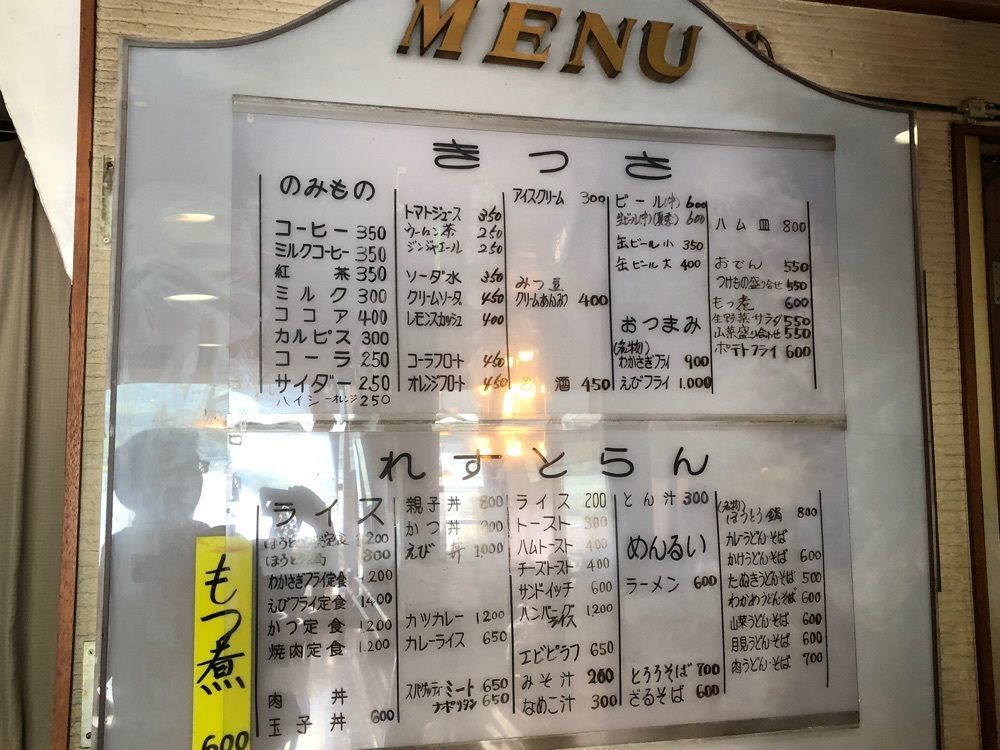 MENU
きっさ
のみもの
コーヒー 350
ミルクコーヒー 350
紅茶 350
ミルク 300
ココア 400
カルピス 300
コーラ 250
サイダー 250
ハイシーオレンジ 250
トマトジュース 350
ウーロン茶 250
ジンジャエール 250
ソーダ水 350
クリームソーダ 450
レモンスカッシュ 400
コーラフロート 450
オレンジフロート 450
アイスクリーム 300
みつ豆
クリームあんみつ 400
お酒 450
ビール(中) 600
生ビール(中)(夏季) 600
缶ビール小 350
缶ビール大 400
おつまみ
(名物)
わかさぎフライ 900
えびフライ 1.000
ハム皿 800
おでん 550
つけもの盛り合せ 550
もつ煮 600
生野菜サラダ 550
山菜盛り合わせ 550
ポテトフライ 600
れすとらん
ライス
ほうとう定食 1200
ほうとう 800
わかさぎフライ定食 1200
えびフライ定食 1400
かつ定食 1200
焼肉定食 1.200
肉丼
玉子丼 600
親子丼 800
かつ丼
えび丼 1000
カツカレー 1200
カレーライス 650
スパゲッティミート 650
ナポリタン 650
ライス 200
トースト 300
ハムトースト 400
チーズトースト 400
サンドイッチ 600
ハンバーグライス 1.200
エビピラフ 650
みそ汁 200
なめこ汁 300
とん汁 300
めんるい
ラーメン 600
とろろそば 700
ざるそば 600
(名物)
ほうとう鍋 800
カレーうどん・そば
かけうどん・そば 600
たぬきうどん・そば 500
わかめうどん・そば 600
山菜うどん・そば 600
月見うどん・そば 600
肉うどん・そば 700
もつ煮
600